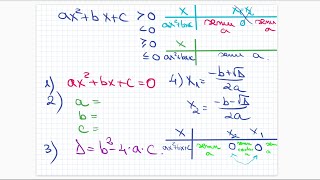 ax²+bx+c > 0
< 0
≥ 0
≤ 0
x | x₁x₂
ax²+bx+c | semn a 0 semn a
x
ax²+bx+c | semn a.
1) ax²+bx+c=0
2) a =
b =
c =
3) Δ = b²-4·a·c.
4) x₁ = -b+√Δ / 2a
x₂ = -b-√Δ / 2a
x | x₂ x₁
ax²+bx+c | semn a 0 semn a 0 semn a